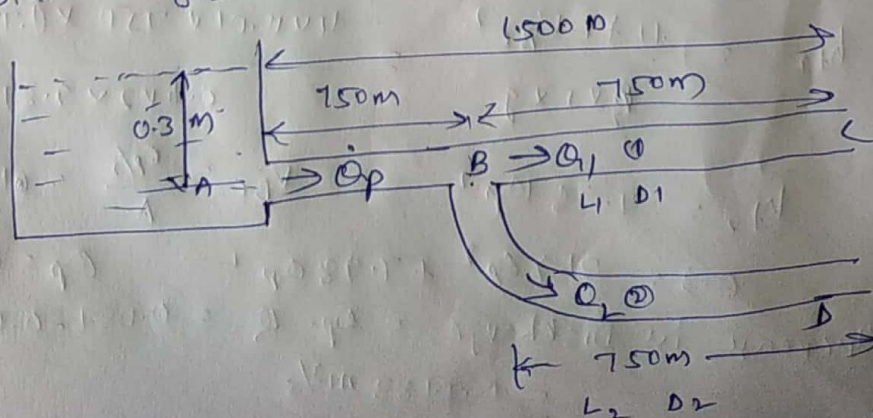 1500 m
750m
750m
0.3 m
A
Qp
B
Q1 ①
C
L1 D1
Q2 ②
D
750m
L2 D2